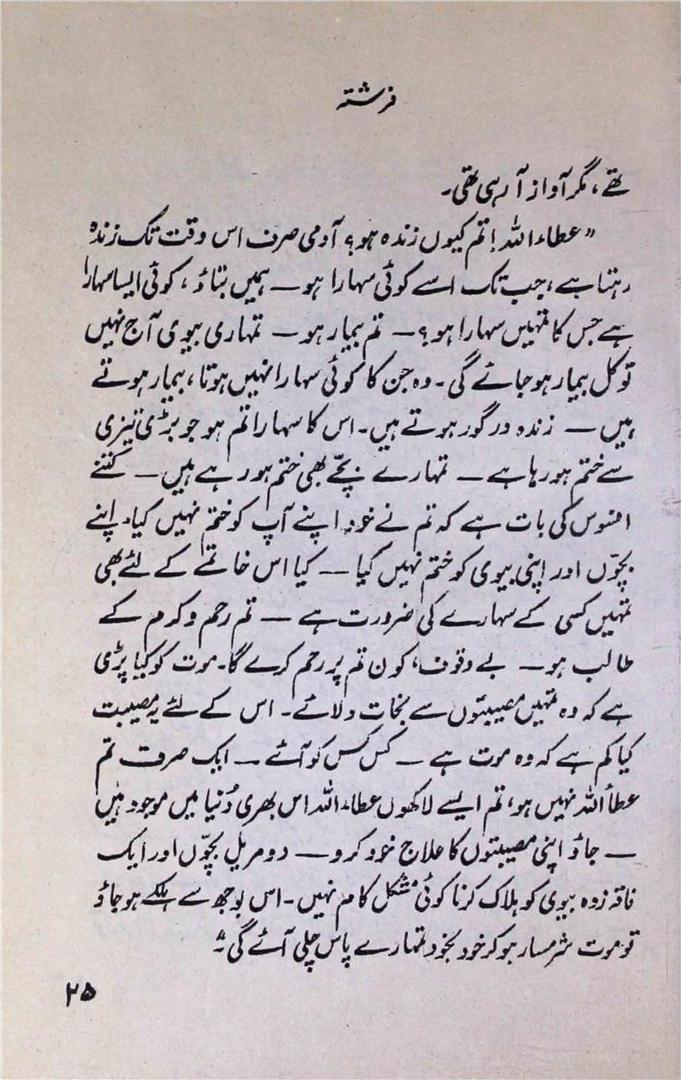 فرشتہ
تھے، مگر آواز آ رہی تھی۔
”عطاء اللہ! تم کیوں زندہ ہو؟ آدمی صرف اس وقت تک زندہ
رہتا ہے، جب تک اسے کوئی سہارا ہو — ہمیں بتاؤ، کوئی ایسا سہارا
ہے جس کا تمہیں سہارا ہو؟ — تم بیمار ہو — تمہاری بیوی آج نہیں
تو کل بیمار ہو جائے گی۔ وہ جن کا کوئی سہارا نہیں ہوتا، بیمار ہوتے
ہیں — زندہ درگور ہوتے ہیں۔ اس کا سہارا تم ہو جو بڑی تیزی
سے ختم ہو رہا ہے — تمہارے بچّے بھی ختم ہو رہے ہیں — کتنے
افسوس کی بات ہے کہ تم نے خود اپنے آپ کو ختم نہیں کیا۔ اپنے
بچّوں اور اپنی بیوی کو ختم نہیں کیا — کیا اس خاتمے کے لئے بھی
تمہیں کسی کے سہارے کی ضرورت ہے — تم رحم و کرم کے
طالب ہو — بے وقوف، کون تم پر رحم کرے گا۔ موت کو کیا پڑی
ہے کہ وہ تمہیں مصیبتوں سے نجات دلائے۔ اس کے لئے یہ مصیبت
کیا کم ہے کہ وہ موت ہے — کس کس کو آئے — ایک صرف تم
عطأ اللہ نہیں ہو، تم ایسے لاکھوں عطاء اللہ اس بھری دُنیا میں موجود ہیں
— جاؤ اپنی مصیبتوں کا علاج خود کرو — دو مریل بچّوں اور ایک
فاقہ زدہ بیوی کو ہلاک کرنا کوئی مشکل کام نہیں۔ اس بوجھ سے ہلکے ہو جاؤ
تو موت شرمسار ہو کر خود بخود تمہارے پاس چلی آئے گی۔“
۲۵